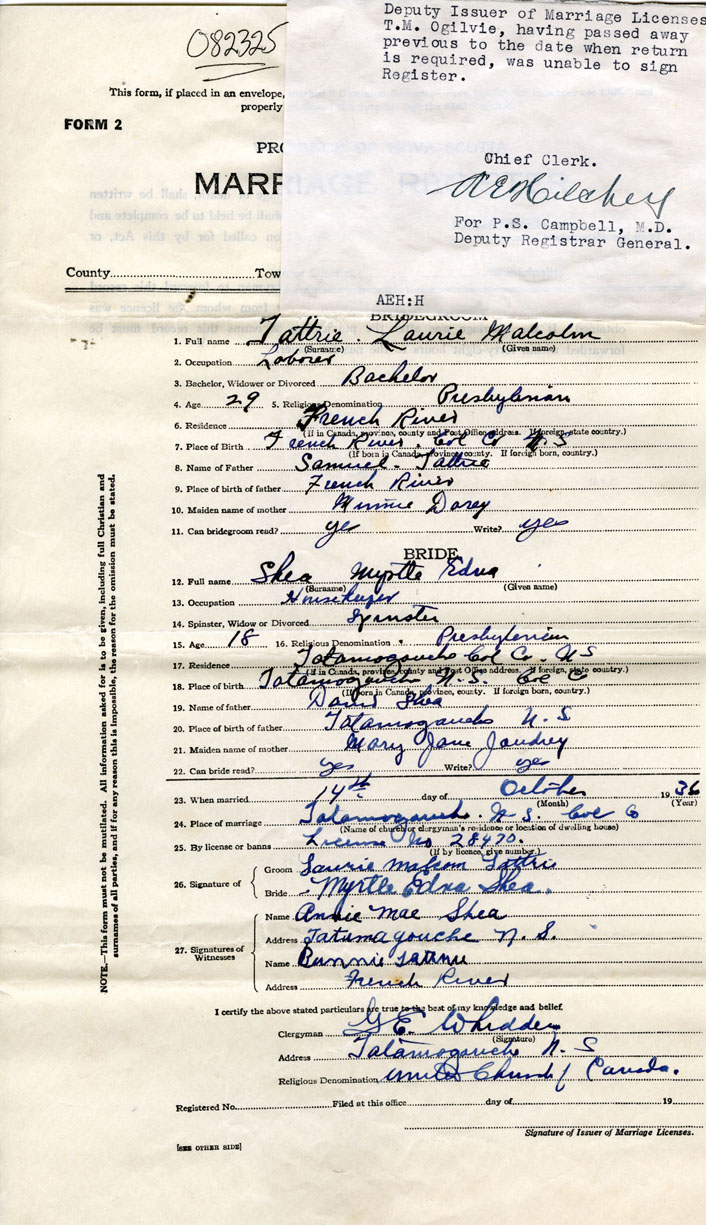 082325
Deputy Issuer of Marriage Licenses
T.M. Ogilvie, having passed away
previous to the date when return
is required, was unable to sign
Register.
Chief Clerk.
For P.S. Campbell, M.D.
Deputy Registrar General.
AEH:H
This form, if placed in an envelope,
properly
FORM 2
MARR
County Tow
BRIDEGROOM
1. Full name Tattrie. Laurie Malcolm
(Surname) (Given name)
2. Occupation Laborer
3. Bachelor, Widower or Divorced Bachelor
4. Age 29 5. Religious Denomination Presbyterian
6. Residence French River
(If in Canada, province, county and Post Office address. If foreign, state country.)
7. Place of Birth French River. Col Co N.S
(If born in Canada, province, county. If foreign born, country.)
8. Name of Father Samuel. Tattrie
9. Place of birth of father French River
10. Maiden name of mother Minnie Dorey
11. Can bridegroom read? yes Write? yes
BRIDE
12. Full name Shea Myrtle Edna
(Surname) (Given name)
13. Occupation Housekeeper
14. Spinster, Widow or Divorced Spinster
15. Age 18 16. Religious Denomination Presbyterian
17. Residence Tatamagouche Col Co. N S
(If in Canada, province, county and Post Office address. If foreign, state country.)
18. Place of birth Tatamagouche N.S. Col C
(If born in Canada, province, county. If foreign born, country.)
19. Name of father David Shea
20. Place of birth of father Tatamagouche N.S
21. Maiden name of mother Mary Jane Jaudrey
22. Can bride read? yes Write? yes
23. When married 14th day of October 1936
(Month) (Year)
24. Place of marriage Tatamagouche. N.S. Col Co
(Name of church or clergyman's residence or location of dwelling house)
25. By license or banns License No 28470.
(If by licence, give number.)
26. Signature of
Groom Laurie Malcom Tattrie
Bride Myrtle Edna Shea.
27. Signatures of Witnesses
Name Annie Mae Shea
Address Tatumagouche N.S.
Name Bunnie Tattrie
Address French River
I certify the above stated particulars are true to the best of my knowledge and belief.
Clergyman G.E. Whidden
(Signature)
Address Tatamagouche N.S
Religious Denomination United Church of Canada.
Registered No. Filed at this office day of 19
Signature of Issuer of Marriage Licenses.
[SEE OTHER SIDE]
NOTE.—This form must not be mutilated. All information asked for is to be given, including full Christian and
surnames of all parties, and if for any reason this is impossible, the reason for the omission must be stated.